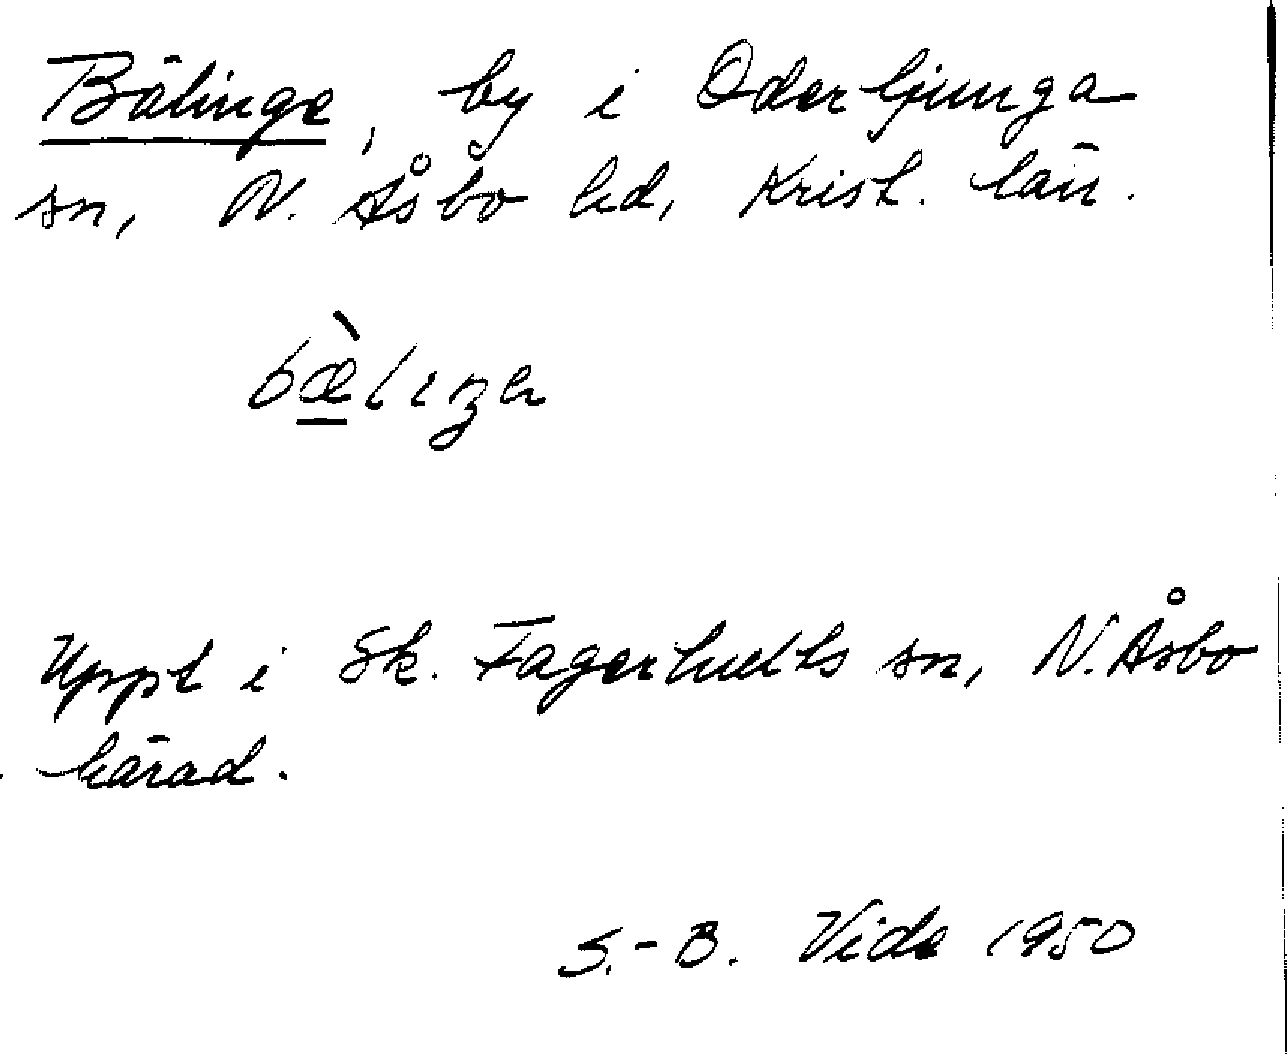 Bälinge, by i Oderljunga
sn, N. Åsbo hd, Krist. län.
bæ̀liŋa
Uppt i Sk. Fagerhults sn, N. Åsbo
härad.
S.-B. Vide 1950